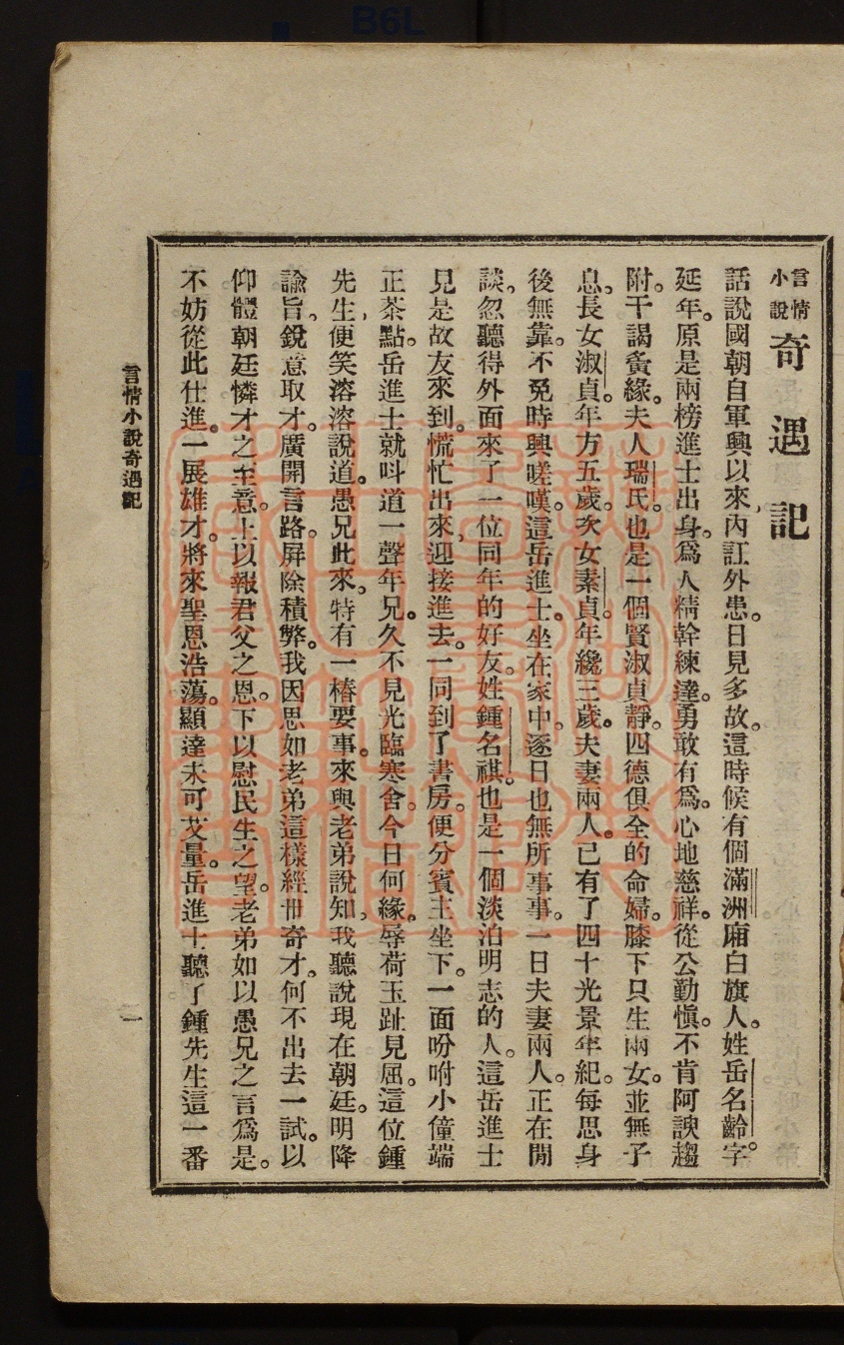 言情小說 奇遇記
話說國朝自軍興以來、內訌外患。日見多故。這時候有個滿洲廂白旗人。姓岳名齡。字
延年。原是兩榜進士出身。爲人精幹練達。勇敢有爲。心地慈祥。從公勤愼。不肯阿諛趨
附。干謁夤緣。夫人瑞氏。也是一個賢淑貞靜。四德俱全的命婦。膝下只生兩女。並無子
息。長女淑貞。年方五歲。次女素貞。年纔三歲。夫妻兩人。已有了四十光景年紀。每思身
後無靠。不免時興嗟嘆。這岳進士。坐在家中。逐日也無所事事。一日夫妻兩人。正在閒
談。忽聽得外面來了一位同年的好友。姓鍾名祺。也是一個淡泊明志的人。這岳進士
見是故友來到。慌忙出來、迎接進去。一同到了書房。便分賓主坐下。一面吩咐小僮端
正茶點。岳進士就呌道一聲年兄。久不見光臨寒舍。今日何緣。辱荷玉趾見屈。這位鍾
先生、便笑溶溶說道。愚兄此來。特有一樁要事。來與老弟說知、我聽說現在朝廷。明降
諭旨。銳意取才。廣開言路。屏除積弊。我因思如老弟這樣經世奇才。何不出去一試。以
仰體朝廷憐才之至意。上以報君父之恩。下以慰民生之望。老弟如以愚兄之言爲是。
不妨從此仕進。一展雄才。將來聖恩浩蕩。顯達未可艾量。岳進士聽了鍾先生這一番
言情小說奇遇記
一
B6L